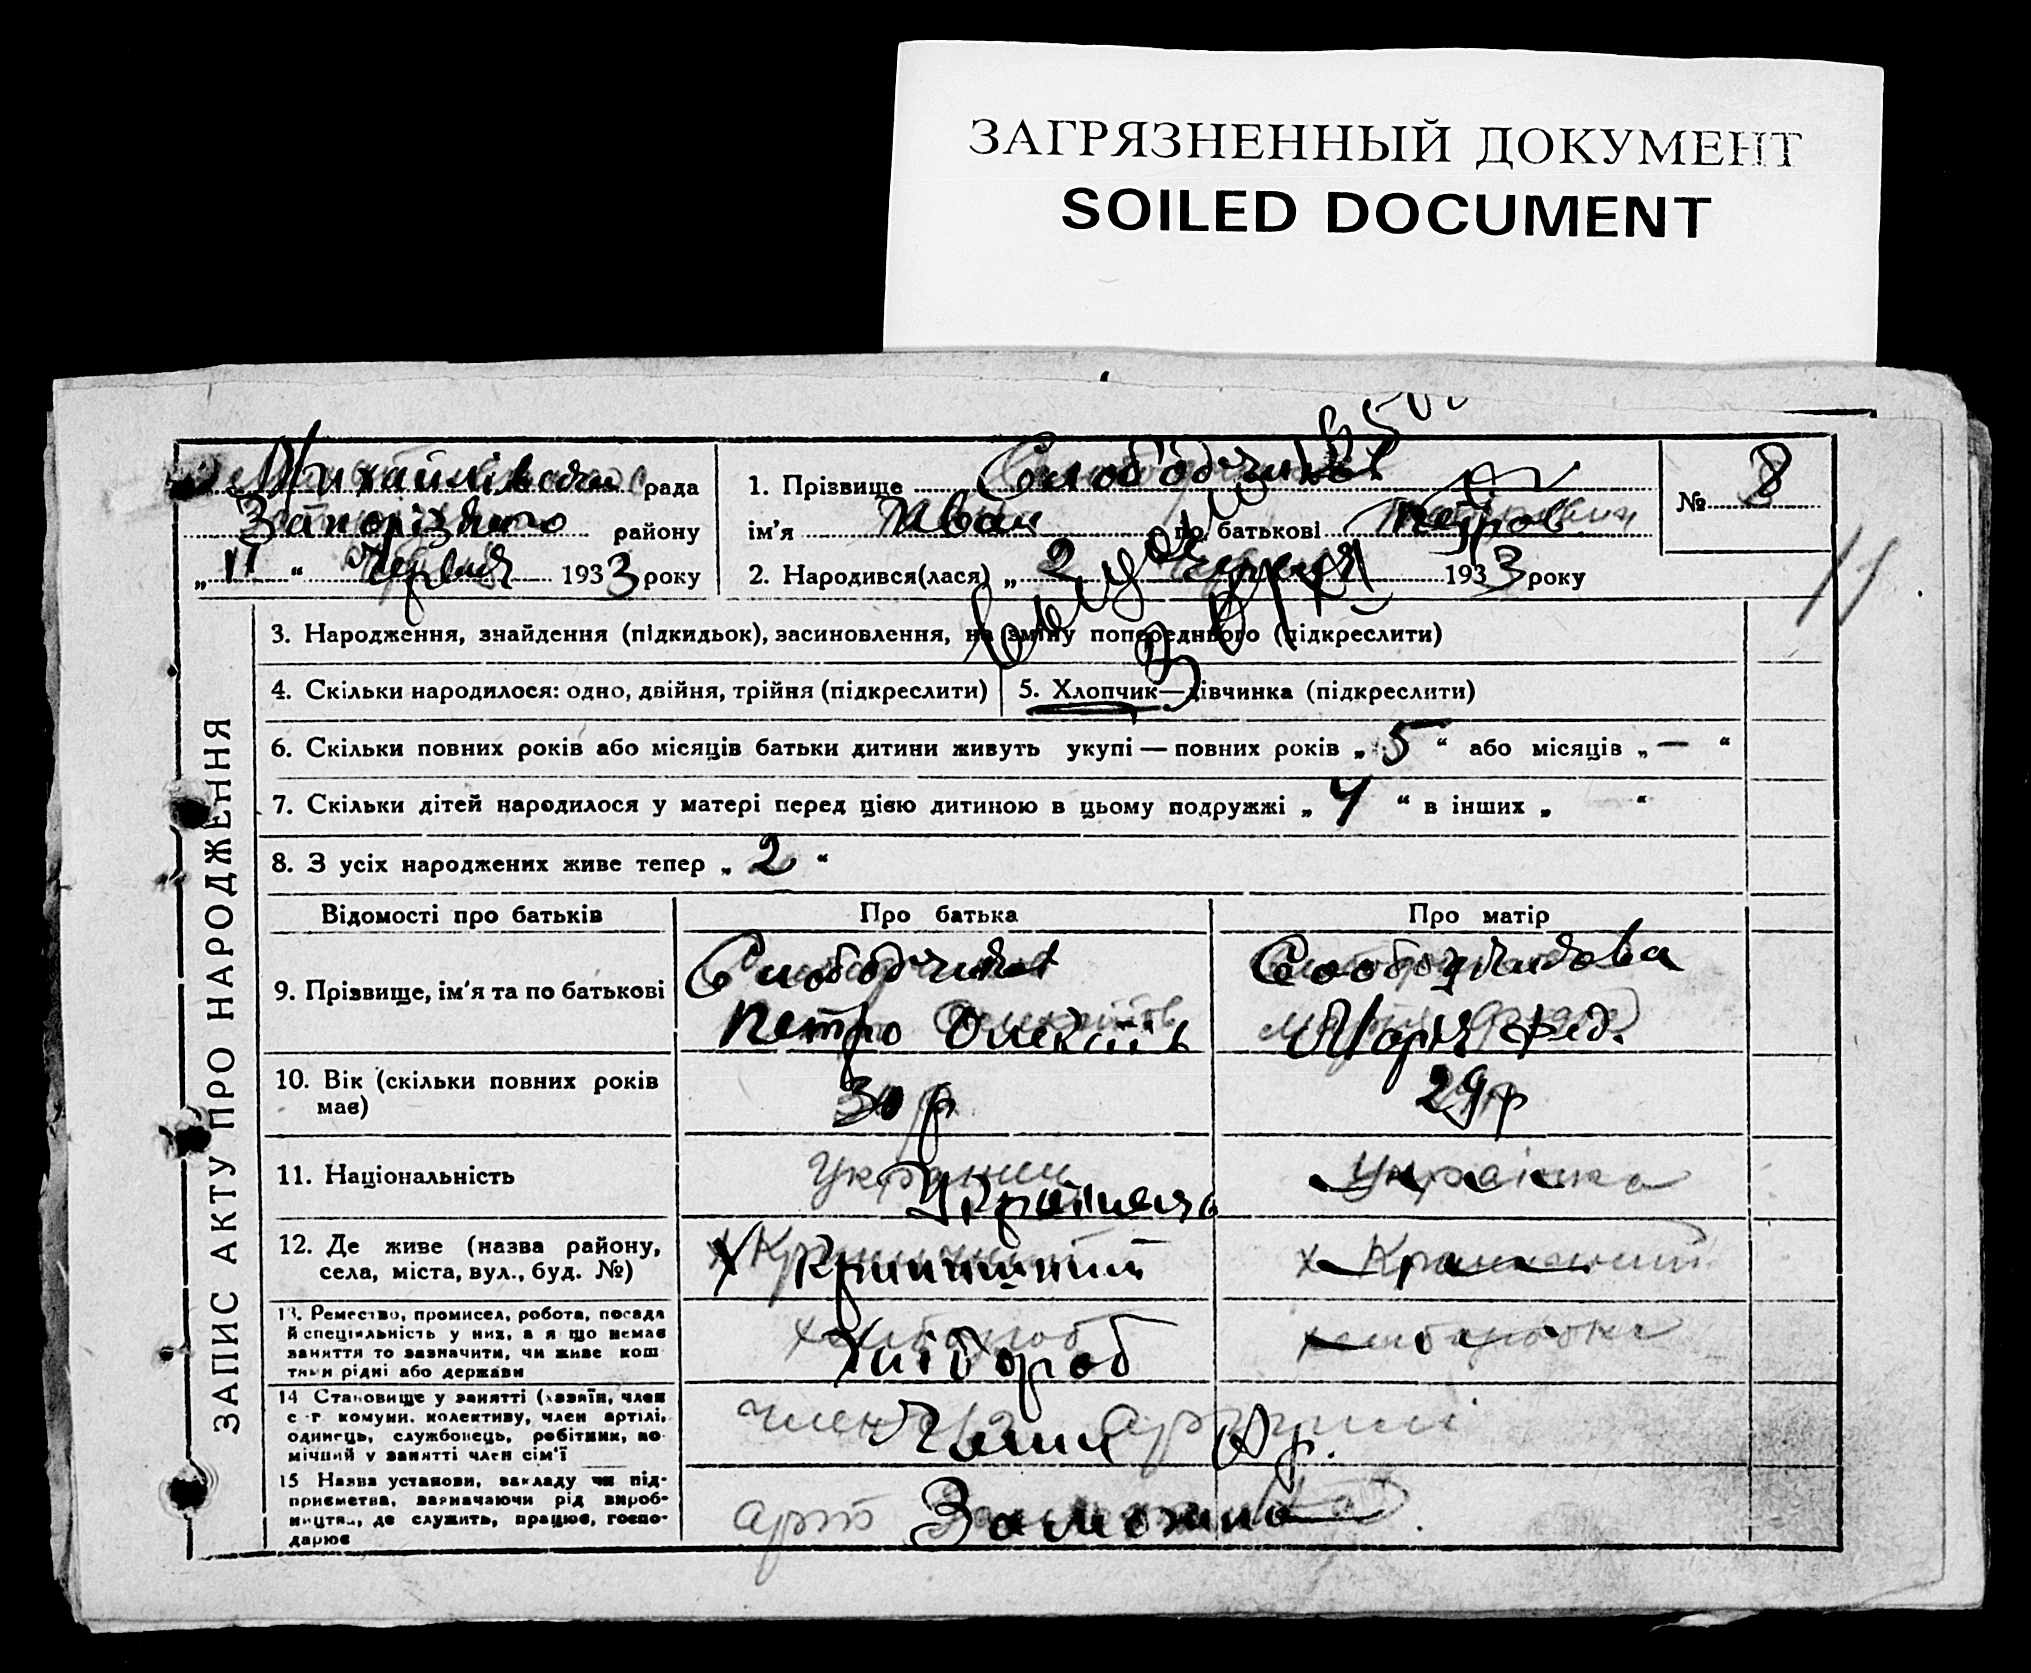 ЗАГРЯЗНЕННЫЙ ДОКУМЕНТ
SOILED DOCUMENT
Михайлівська рада
Запорізького району
„11“ Червня 1933 року
1. Прізвище Слободчиков
ім'я Иван по батькові Петров
2. Народився(лася) „2 Червня 1933 року
№ 8
ЗАПИС АКТУ ПРО НАРОДЖЕННЯ
3. Народження, знайдення (підкидьок), засиновлення, на зміну попереднього (підкреслити)
4. Скільки народилося: одно, двійня, трійня (підкреслити)
5. Хлопчик—дівчинка (підкреслити)
6. Скільки повних років або місяців батьки дитини живуть укупі — повних років „5“ або місяців „—“
7. Скільки дітей народилося у матері перед цією дитиною в цьому подружжі „4“ в інших „ “
8. З усіх народжених живе тепер „2“
Відомості про батьків Про батька Про матір
9. Прізвище, ім'я та по батькові
Слободчиков
Петро Олексіїв
Слободчикова
Марія Фед.
10. Вік (скільки повних років має)
30 р
29 р
11. Національність
Українець
українка
12. Де живе (назва району,
села, міста, вул., буд. №)
х Криничний
х Криничний
13. Ремество, промисел, робота, посада
й спеціяльність у них, а якщо немає
заняття то зазначити, чи живе кош
тами рідні або держави
Хлібороб
14 Становище у занятті (хазяїн, член
с-г комуни, колективу, член артілі,
одинець, службовець, робітник, по-
мічний у занятті член сім'ї
член артілі
Член Ар.
15 Назва установи, закладу чи під-
приємства, зазначаючи рід вироб-
ництва, де служить, працює, госпо-
дарює
арт Заможна